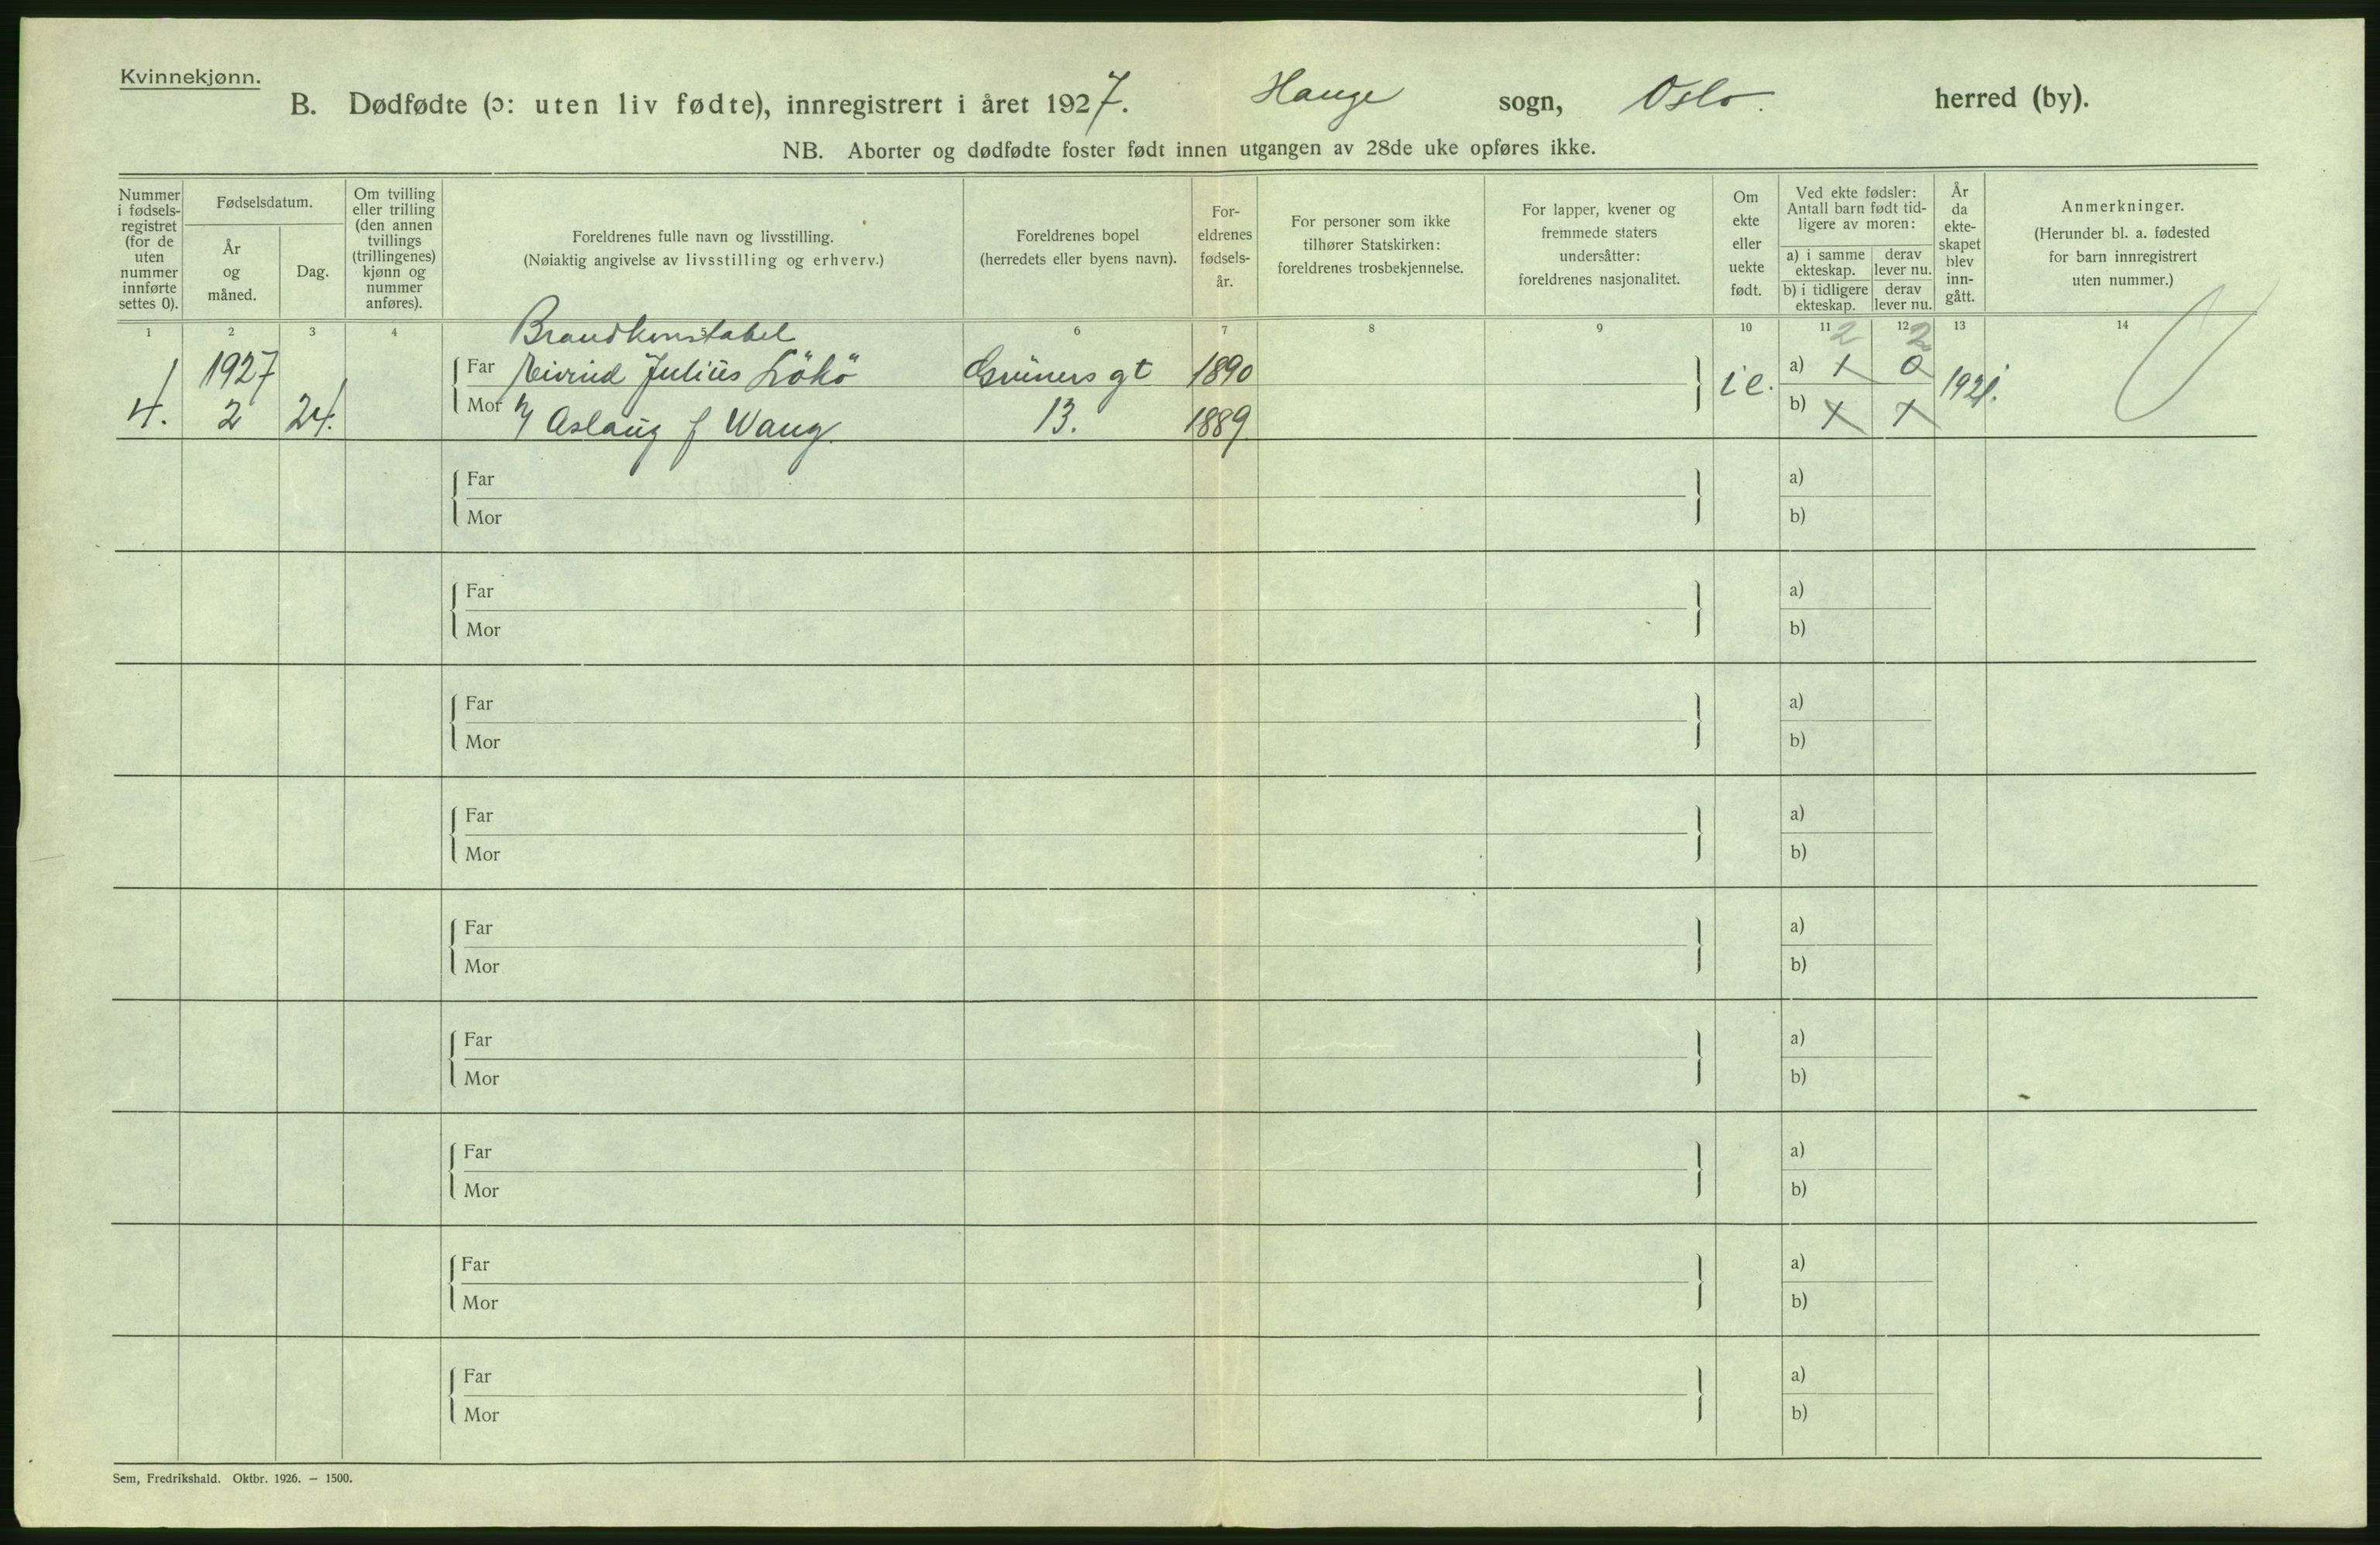 Kvinnekjønn.
B. Dødfødte (ɔ: uten liv fødte), innregistrert i året 1927. Hauge sogn, Oslo. herred (by).
NB. Aborter og dødfødte foster født innen utgangen av 28de uke opføres ikke.
Nummer i fødsels-registret (for de uten nummer innførte settes 0).
Fødselsdatum.
År og måned.
Dag.
Om tvilling eller trilling (den annen tvillings (trillingenes) kjønn og nummer anføres).
Foreldrenes fulle navn og livsstilling.
(Nøiaktig angivelse av livsstilling og erhverv.)
Foreldrenes bopel
(herredets eller byens navn).
For-eldrenes fødsels-år.
For personer som ikke tilhører Statskirken: foreldrenes trosbekjennelse.
For lapper, kvener og fremmede staters undersåtter: foreldrenes nasjonalitet.
Om ekte eller uekte født.
Ved ekte fødsler: Antall barn født tid-ligere av moren:
a) i samme ekteskap.
derav lever nu.
b) i tidligere ekteskap.
derav lever nu.
År da ekte-skapet blev inn-gått.
Anmerkninger.
(Herunder bl. a. fødested for barn innregistrert uten nummer.)
1 2 3 4 5 6 7 8 9 10 11 12 13 14
Brandkonstabel 2 2
1927 Far Eivind Julius Løkø Grüners gt 1890 a) 0
4. 2 24. Mor Aslaug f Wang. 13. 1889 i e. b) x x 1921.
Far a)
Mor b)
Far a)
Mor b)
Far a)
Mor b)
Far a)
Mor b)
Far a)
Mor b)
Far a)
Mor b)
Far a)
Mor b)
Far a)
Mor b)
Far a)
Mor b)
Sem, Fredrikshald. Oktbr. 1926. – 1500.